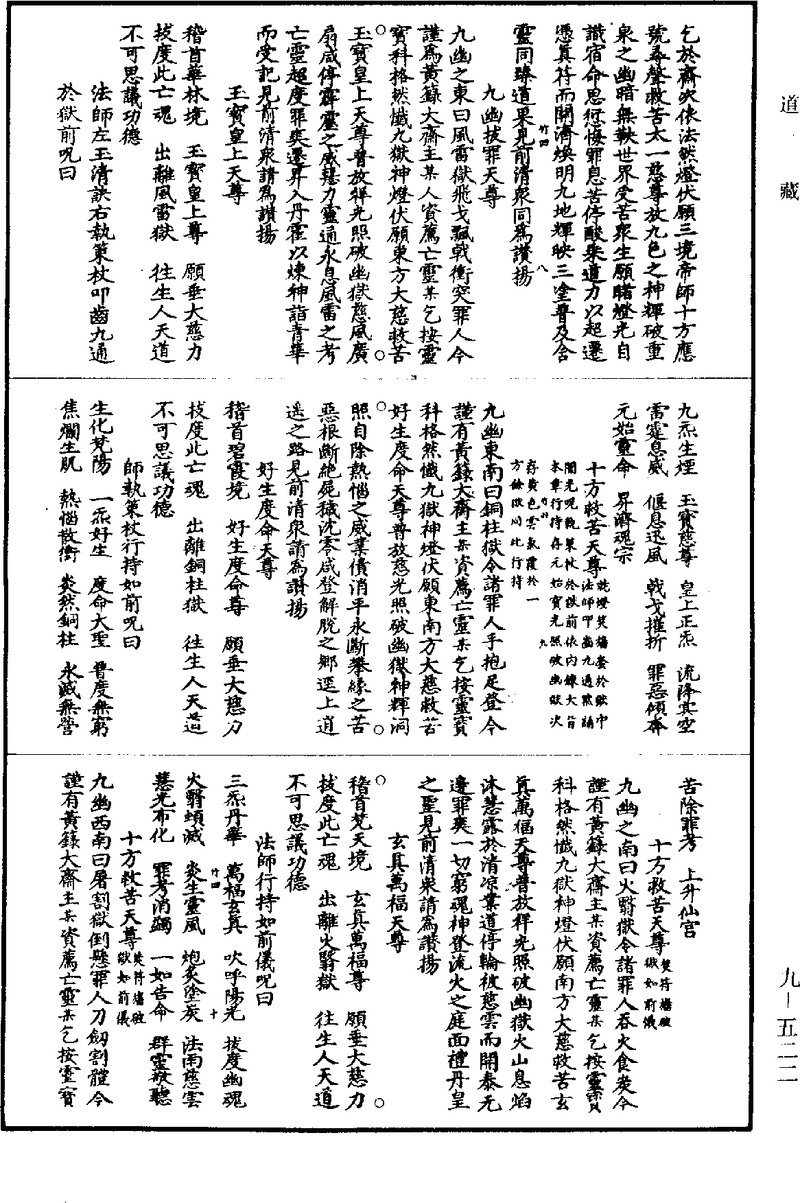 道藏
九－五二二
乞於齋次依法然燈伏願三境帝師十方應
號尋聲救苦太一慈尊放九色之神輝破重
泉之幽暗無鞅世界受苦衆生願睹燈光自
識宿命思愆悔罪息苦停酸乘道力以超遷
憑真符而開濟煥明九地輝映三塗普及含
靈同臻道果見前清衆同爲讚揚
九幽拔罪天尊
九幽之東曰風雷獄飛戈飄戟衝突罪人今
謹爲黃籙大齋主某人資薦亡靈某乞按靈
寶科格然懺九獄神燈伏願東方大慈救苦
玉寶皇上天尊普放祥光照破幽獄慈風廣
扇咸停霹靂之威慧力靈通永息風雷之考
亡靈超度罪爽遷昇入丹霍以煉神詣青華
而受記見前清衆請爲讚揚
玉寶皇上天尊
稽首華林境　玉寶皇上尊　願垂大慈力
拔度此亡魂　出離風雷獄　往生人天道
不可思議功德
法師左玉清訣右執策杖叩齒九通
於獄前呪曰
九炁生煙　玉寶慈尊　皇上正炁　流降寘空
雷霆息威　偃息迅風　戟戈摧折　罪惡傾奔
元始靈命　昇濟魂宗
十方救苦天尊
九幽東南曰銅柱獄令諸罪人手抱足登今
謹有黃籙大齋主某資薦亡靈某乞按靈寶
科格然懺九獄神燈伏願東南方大慈救苦
好生度命天尊普放慈光照破幽獄神輝洞
照自除熱惱之威業債消平永斷攀緣之苦
惡根斷絕屍穢沈零咸登解脫之鄉逕上逍
遥之路見前清衆請爲讚揚
好生度命天尊
稽首碧霞境　好生度命尊　願垂大慈力
拔度此亡魂　出離銅柱獄　往生人天道
不可思議功德
師執策杖行持如前呪曰
生化梵陽　一炁好生　度命大聖　普度無窮
焦爛生肌　熱惱散衝　炎然銅柱　永滅無營
苦除罪考　上升仙宮
十方救苦天尊焚符牆破獄如前儀
九幽之南曰火翳獄令諸罪人吞火食炭今
謹有黃籙大齋主某資薦亡靈某乞按靈寶
科格然懺九獄神燈伏願南方大慈救苦玄
真萬福天尊普放祥光照破幽獄火山息焰
沐慧露於清凉業道停輪被慈雲而開泰无
邊罪爽一切窮魂神登流火之庭面禮丹皇
之聖見前清衆請爲讚揚
玄真萬福天尊
稽首梵天境　玄真萬福尊　願垂大慈力
拔度此亡魂　出離火翳獄　往生人天道
不可思議功德
法師行持如前儀呪曰
三炁丹華　萬福玄真　吹呼陽光　拔度幽魂
火翳頓滅　炎生靈風　炮炙塗炭　法雨慈雲
慧光布化　罪考消蠲　一如告命　群靈敬聽
十方救苦天尊焚符牆破獄如前儀
九幽西南曰屠割獄倒懸罪人刀劒割體今
謹有黃籙大齋主某資薦亡靈某乞按靈寶